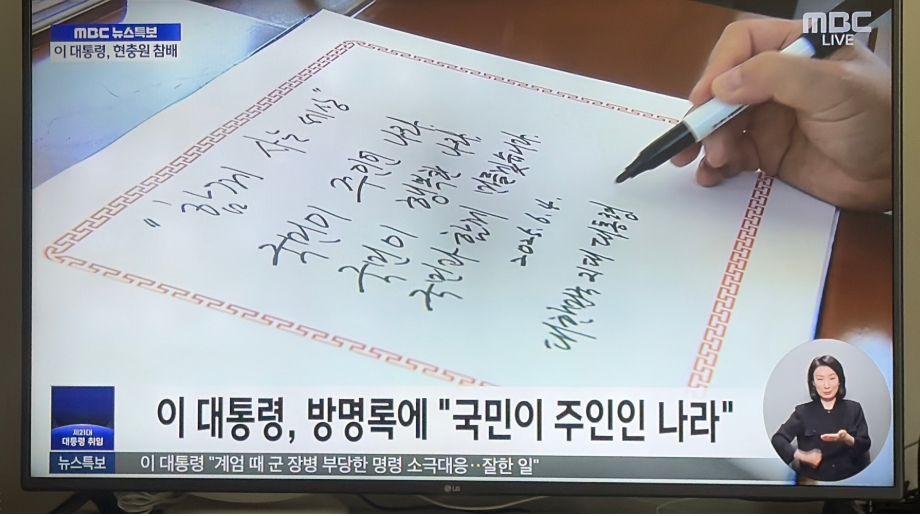 MBC 뉴스특보
이 대통령, 현충원 참배
MBC
LIVE
"함께 사는 세상"
국민이 주인인 나라,
국민이 행복한 나라,
국민과 함께 만들겠습니다.
2025. 6. 4.
대한민국 21대 대통령
제21대
대통령 취임
이 대통령, 방명록에 "국민이 주인인 나라"
뉴스특보
이 대통령 "계엄 때 군 장병 부당한 명령 소극대응··잘한 일"
LG